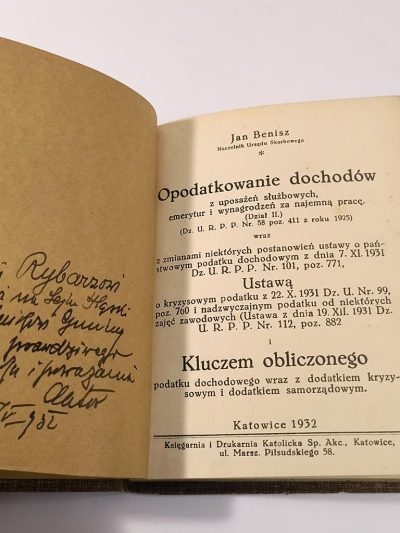 Rybarzowi
na Sejm Śląski
Gminy
prawdziwego
i poważania
Autor
1932
Jan Benisz
Naczelnik Urzędu Skarbowego
*
Opodatkowanie dochodów
z uposażeń służbowych,
emerytur i wynagrodzeń za najemną pracę.
(Dział II.)
(Dz. U. R. P. P. Nr. 58 poz. 411 z roku 1925)
oraz
z zmianami niektórych postanowień ustawy o pań-
stwowym podatku dochodowym z dnia 7. XI. 1931
Dz. U. R. P. P. Nr. 101, poz. 771,
Ustawą
o kryzysowym podatku z 22. X. 1931 Dz. U. Nr. 99,
poz. 760 i nadzwyczajnym podatku od niektórych
zajęć zawodowych (Ustawa z dnia 19. XII. 1931 Dz.
U. R. P. P. Nr. 112, poz. 882
i
Kluczem obliczonego
podatku dochodowego wraz z dodatkiem kryzy-
sowym i dodatkiem samorządowym.
Katowice 1932
Księgarnia i Drukarnia Katolicka Sp. Akc., Katowice,
ul. Marsz. Piłsudskiego 58.